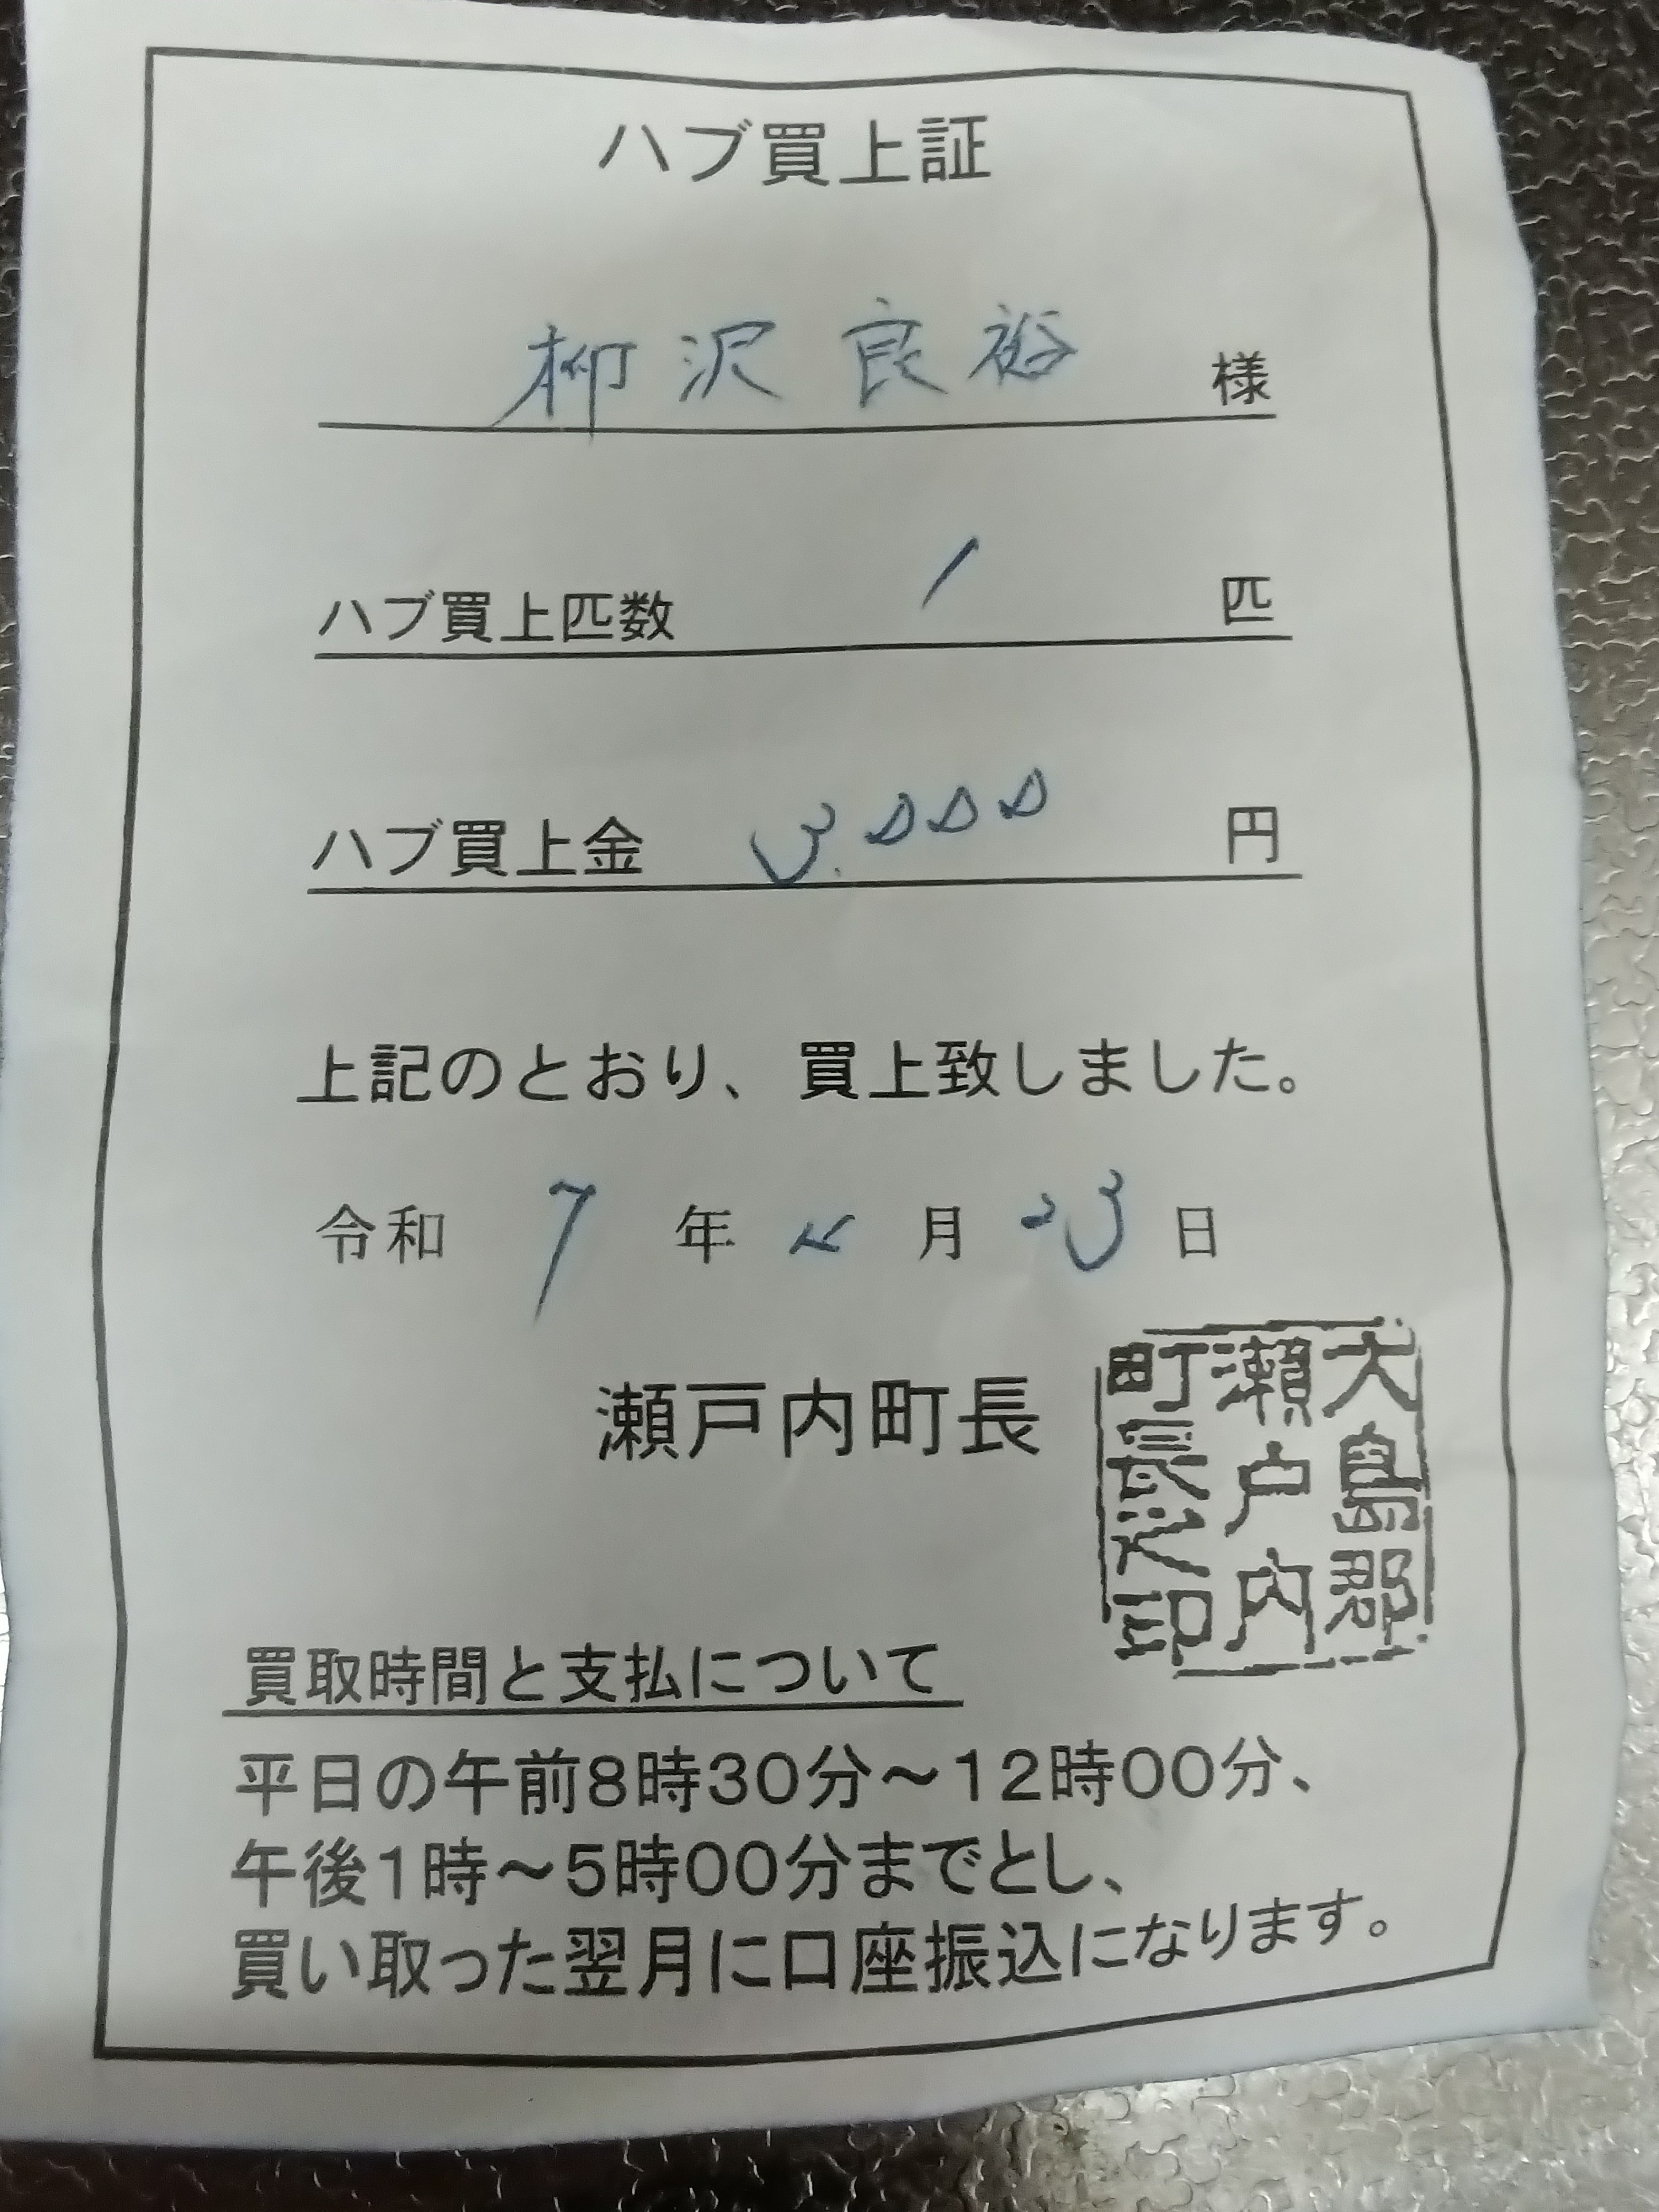 ハブ買上証
柳沢良裕 様
ハブ買上匹数 1 匹
ハブ買上金 3.000 円
上記のとおり、買上致しました。
令和 7 年 月 23 日
瀬戸内町長
大島郡
瀬戸内
町長之印
買取時間と支払について
平日の午前8時30分～12時00分、
午後1時～5時00分までとし、
買い取った翌月に口座振込になります。